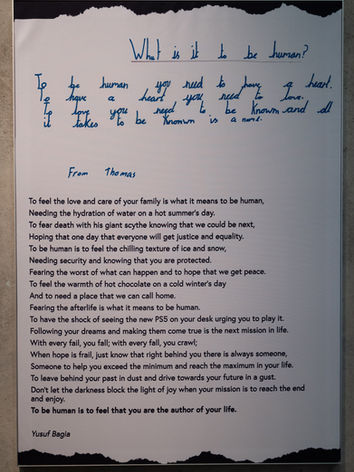 What is it to be human?
To be human you need to have a heart.
To have a heart you need to love.
To love you need to be known and all
it takes to be known is a name.
From Thomas
To feel the love and care of your family is what it means to be human,
Needing the hydration of water on a hot summer's day.
To fear death with his giant scythe knowing that we could be next,
Hoping that one day that everyone will get justice and equality.
To be human is to feel the chilling texture of ice and snow,
Needing security and knowing that you are protected.
Fearing the worst of what can happen and to hope that we get peace.
To feel the warmth of hot chocolate on a cold winter's day
And to need a place that we can call home.
Fearing the afterlife is what it means to be human.
To have the shock of seeing the new PS5 on your desk urging you to play it.
Following your dreams and making them come true is the next mission in life.
With every fail, you fall; with every fall, you crawl;
When hope is frail, just know that right behind you there is always someone,
Someone to help you exceed the minimum and reach the maximum in your life.
To leave behind your past in dust and drive towards your future in a gust.
Don't let the darkness block the light of joy when your mission is to reach the end
and enjoy.
To be human is to feel that you are the author of your life.
Yusuf Bagia